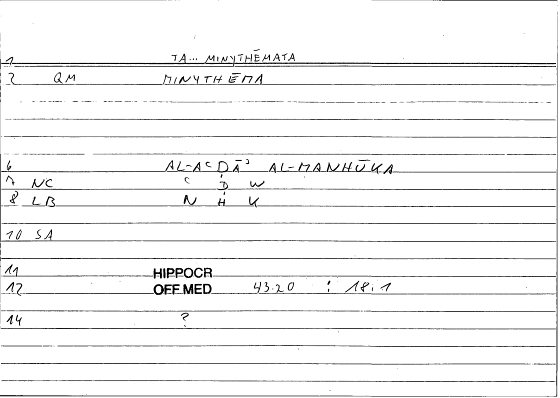 1 TA... MINYTHĒMATA
2 QM MINYTHĒMA
6 AL-AʿḌĀʾ AL-MANHŪKA
7 NC ʿ Ḍ W
8 LB N H K
10 SA
11 HIPPOCR
12 OFF MED 43.20 : 18.1
14 ?